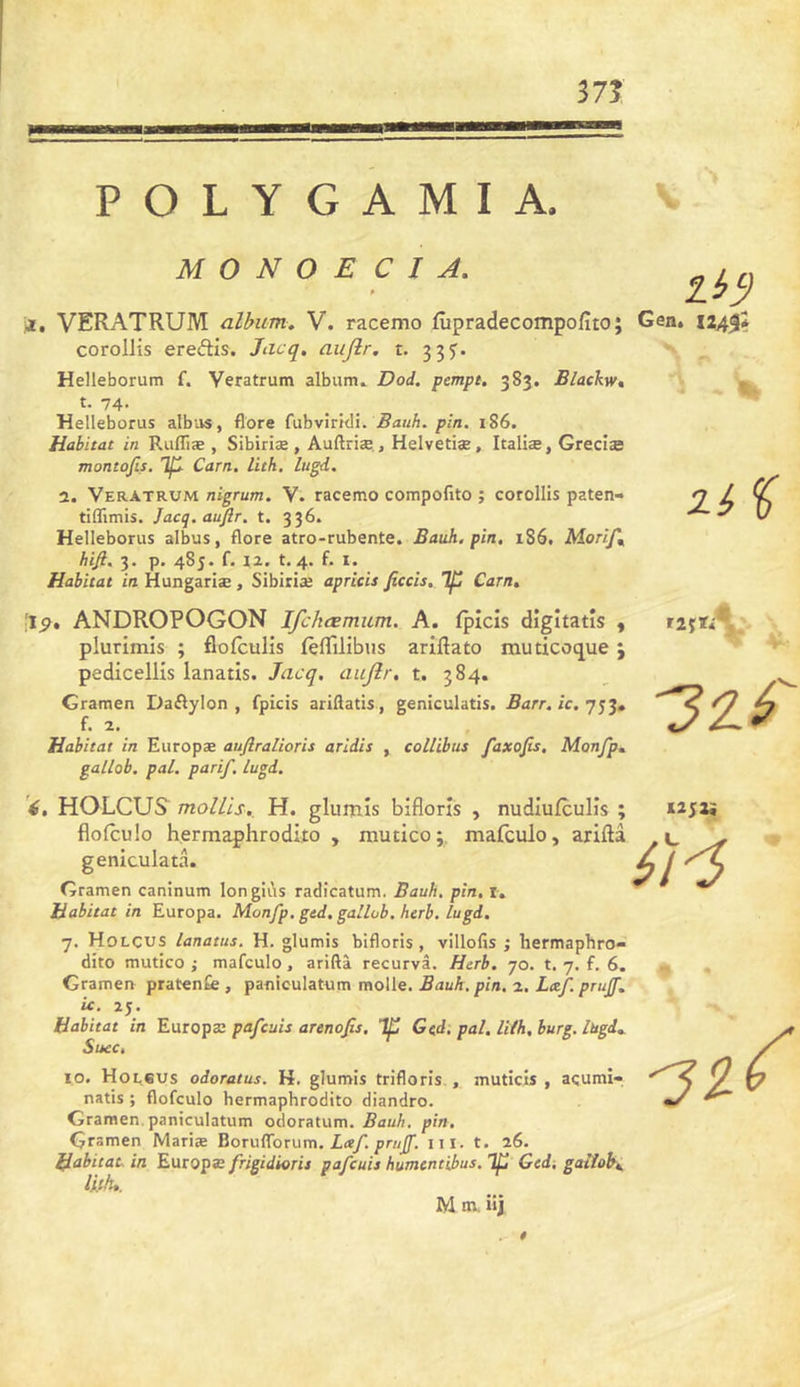 373
POLYGAMIA.
MONOECIA.
259
1. VERATRUM album. V. racemo ſupradecompoſito; Gen. 1249.
corollis erectis. Jacq. auſtr. t. 335.
Helleborum ſ. Veratrum album. Dod. pempt. 383. Blackw.
t. 74.
Helleborus albus, flore ſubviridi. Bauh. pin. 186.
Habitat in Ruſſiæ, Sibiriæ, Auſtriæ, Helvetiæ, Italiæ, Greciæ
montoſis. ♃ Carn. lith. lugd.
2. VERATRUM nigrum. V. racemo compoſito; corollis paten-
tiſſimis. Jacq. auſtr. t. 336.
Helleborus albus, flore atro-rubente. Bauh. pin. 186. Moriſ.
hiſt. 3. p. 485. f. 12. t. 4. f. 1.
Habitat in Hungariæ, Sibiriæ apricis ſiccis. ♃ Carn.
19. ANDROPOGON Iſchæmum. A. ſpicis digitatis,
plurimis; floſculis ſeſſilibus ariſtato muticoque;
pedicellis lanatis. Jacq. auſtr. t. 384.
325
Gramen Dactylon, ſpicis ariſtatis, geniculatis. Barr. ic. 753.
f. 2.
Habitat in Europæ auſtralioris aridis, collibus ſaxoſis. Monſp.
gallob. pal. pariſ. lugd.
6. HOLCUS mollis. H. glumis bifloris, nudiuſculis; 1252.
floſculo hermaphrodito, mutico; maſculo, ariſtâ
geniculatâ.
Gramen caninum longiùs radicatum. Bauh. pin. 1.
Habitat in Europa. Monſp. ged. gallob. herb. lugd.
7. HOLCUS lanatus. H. glumis bifloris, villoſis; hermaphro-
dito mutico; maſculo, ariſtâ recurvâ. Herb. 70. t. 7. f. 6.
Gramen pratenſe, paniculatum molle. Bauh. pin. 2. Læſ. pruſſ.
ic. 25.
Habitat in Europæ paſcuis arenoſis. ♃ Ged. pal. lith. burg. lugd.
Suec.
326
10. HOLCUS odoratus. H. glumis trifloris, muticis, acumi-
natis; floſculo hermaphrodito diandro.
Gramen paniculatum odoratum. Bauh. pin.
Gramen Mariæ Boruſſorum. Læſ. pruſſ. 111. t. 26.
Habitat in Europæ frigidioris paſcuis humentibus. ♃ Ged. gallob.
lith.
M m iij